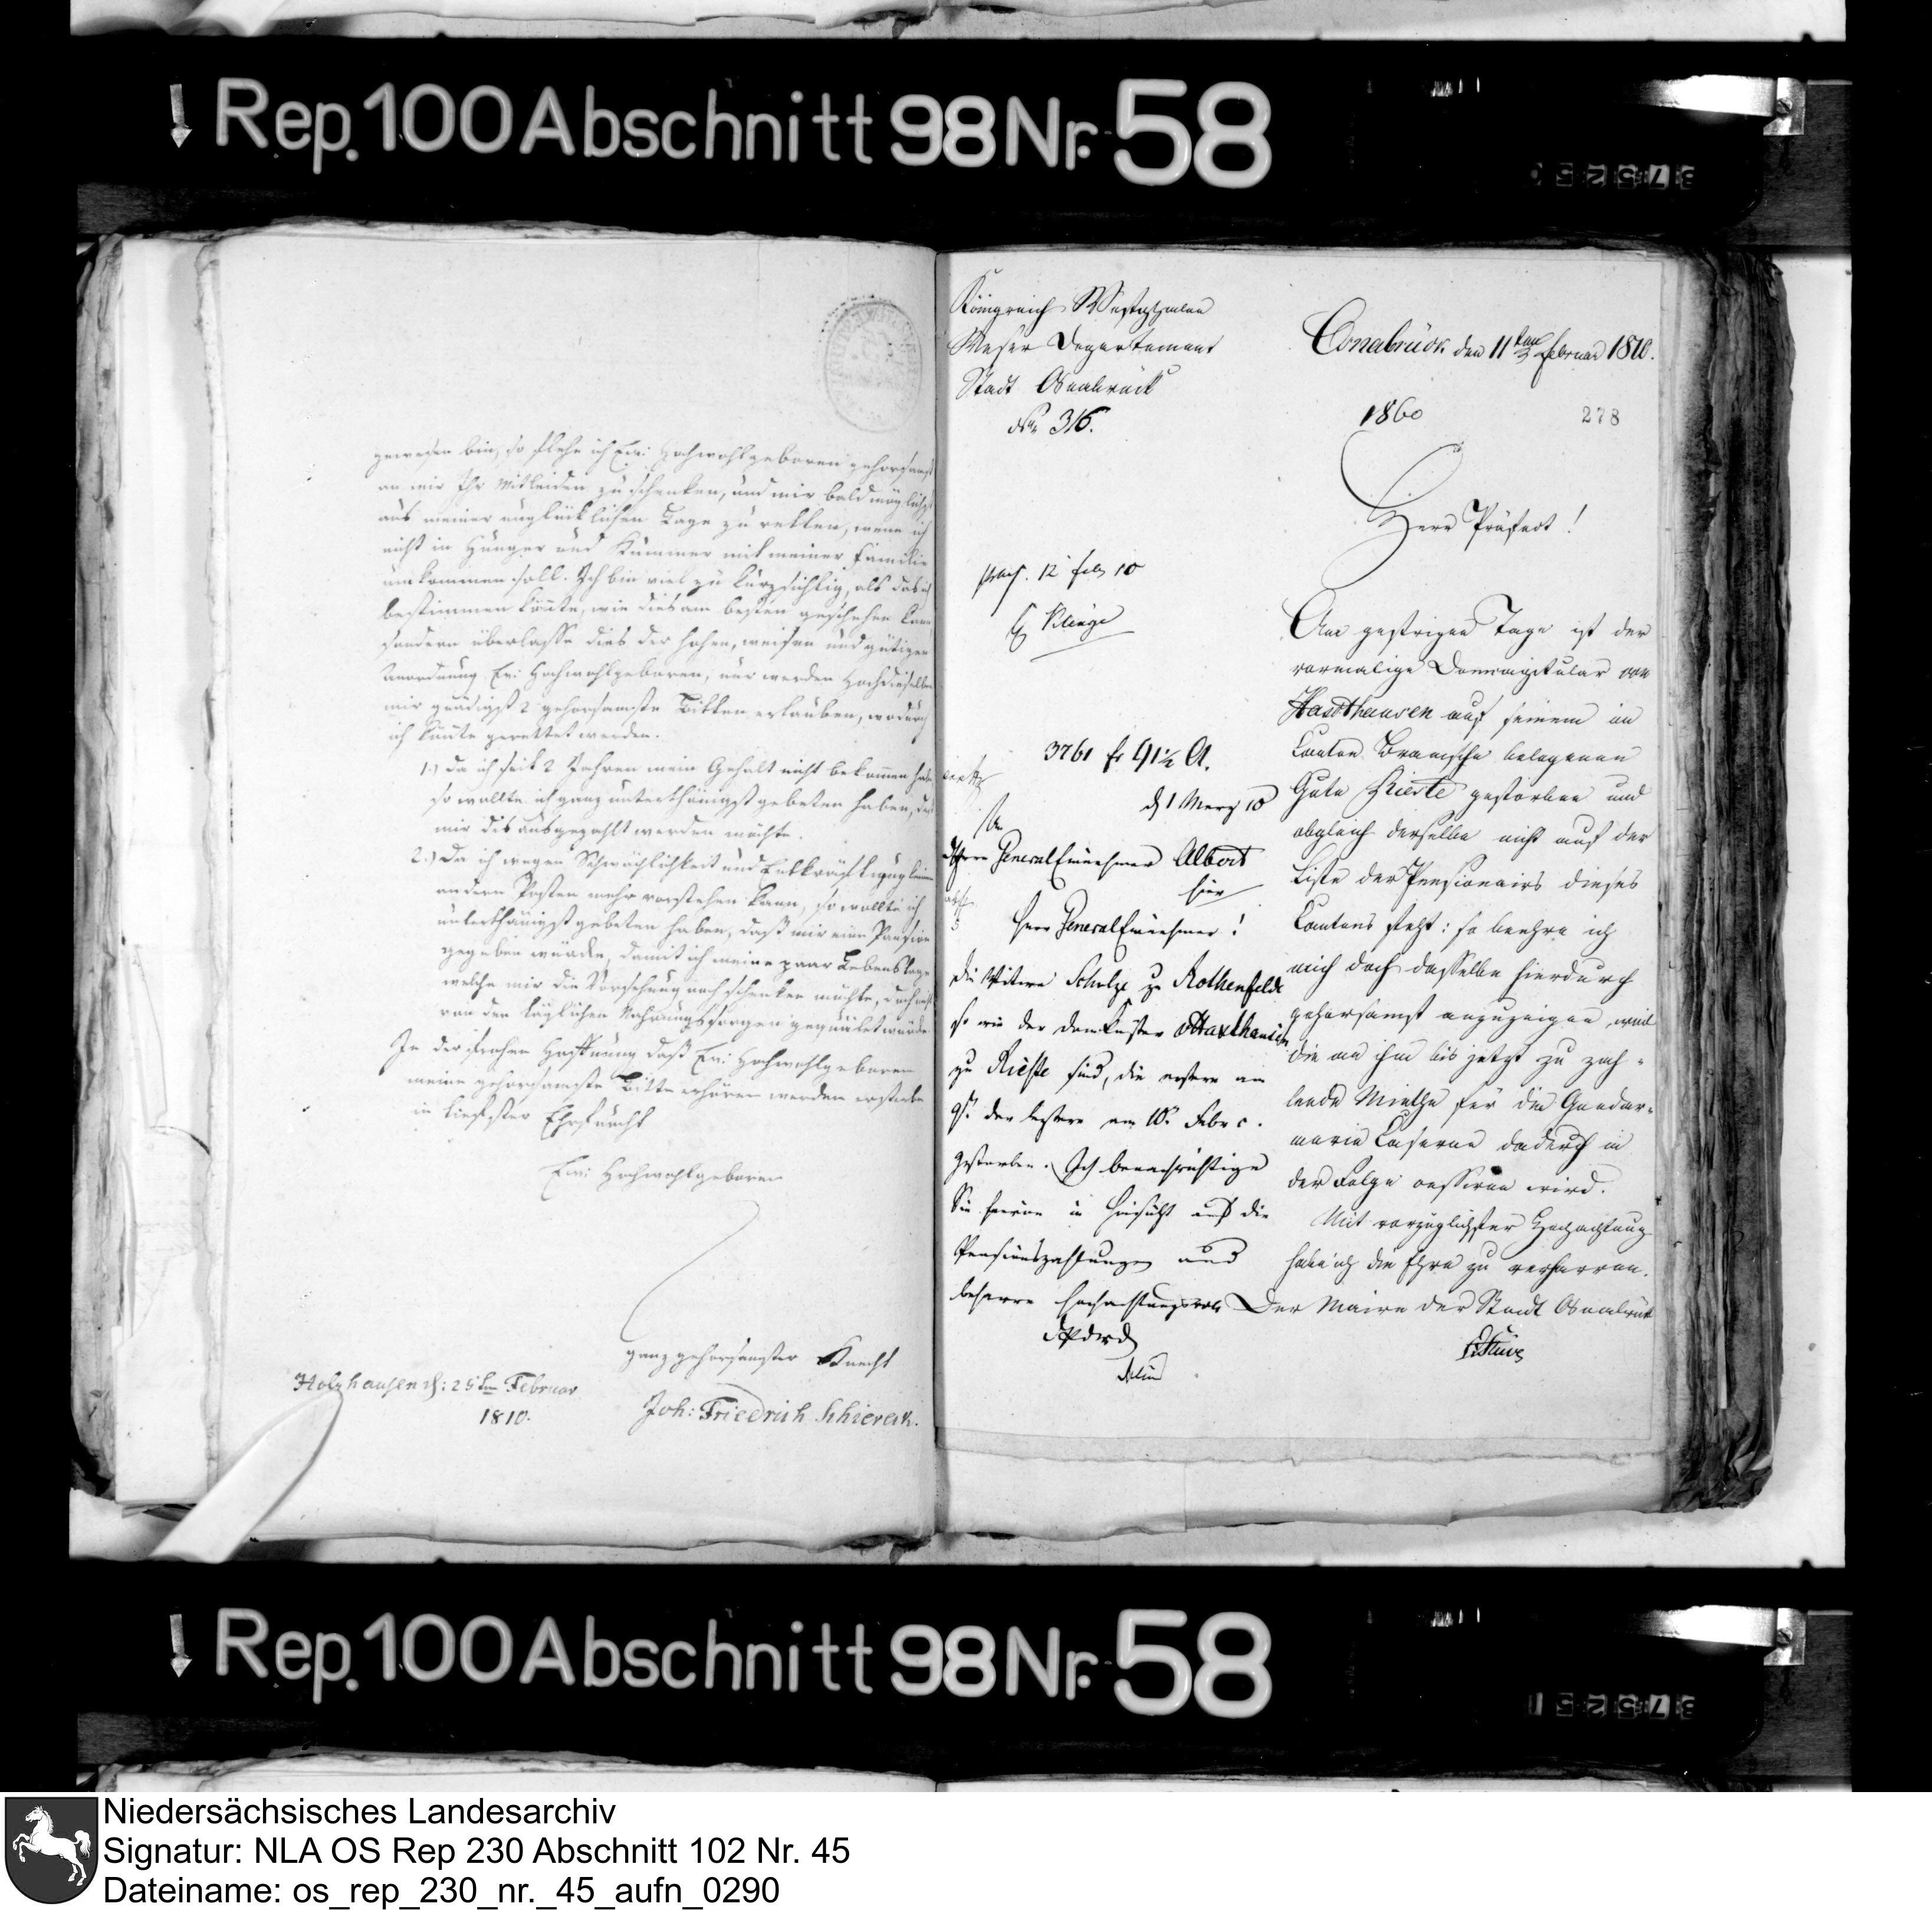 Rep. 100 Abschnitt 98 Nr. 58
gewesen bin, so flehe ich Ew: Hochwohlgeboren gehorsamst
an mir Ihr Mitleiden zu schenken, und mir baldmöglichst
aus meiner unglücklichen Lage zu retten, wenn ich
nicht in Hunger und Kummer mit meiner Familie
umkommen soll. Ich bin viel zu kurzsichtig, als daß ich
bestimmen könnte, wie dies am besten geschehen kann
sondern überlasse dies der hohen, weisen und gütigen
Anordnung Ew: Hochwohlgeboren, nur werden Hochdieselben
mir gnädigst 2 gehorsamste Bitten erlauben, wodurch
ich könnte gerettet werden.
1.) Da ich seit 2 Jahren mein Gehalt nicht bekommen habe
so wollte ich ganz unterthänigst gebeten haben, daß
mir dis ausgezahlt werden möchte.
2.) Da ich wegen Schwächlichkeit und Entkräftigung keinen
andern Posten mehr vorstehen kann, so wollte ich
unterthänigst gebeten haben, daß mir eine Pension
gegeben würde, damit ich meine paar Lebenstage
welche mir die Vorsehung noch schenken möchte, doch nicht
von den täglichen Nahrungssorgen gequälet würde.
In der frohen Hoffnung daß Ew: Hochwohlgeboren
meine gehorsamste Bitte erhören werden ersterbe
in tiefster Ehrfurcht
Ew: Hochwohlgeboren
ganz gehorsamster Knecht
Holzhausen d: 25ten Februar
1810.
Joh: Friedrich Schierek.
Königreich Westphalen
Weser Departement
Stadt Osnabrück
No 316.
praes. 12 Feb 10
Klinge
3761 fr 91½ Ct.
d 1 Merz 10
An
Herrn General Einnehmer Albert
hier
Herr General Einnehmer!
Die Witwe Schulze zu Rothenfelde
so wie der Domküster Haxthausen
zu Rieste sind, die erstere am
9t. der letztere am 10t. Febr c.
gestorben. Ich benachrichtige
Sie hievon in Hinsicht auf die
Pensionszahlungen und
beharre hochachtungsvoll
Osnabrück den 11ten Februar 1810.
1860
278
Herr Präfect!
Am gestrigen Tage ist der
vormalige Domcapitular von
Haxthausen auf seinem im
Canton Bramsche belegenen
Gute Rieste gestorben und
obgleich derselbe nicht auf der
Liste der Pensionairs dieses
Cantons steht: so beehre ich
mich doch dasselbe hierdurch
gehorsamst anzuzeigen, weil
die an ihm bis jetzt zu zah-
lende Miethe für die Gendar-
merie Caserne dadurch in
der Folge cessiren wird.
Mit vorzüglichster Hochachtung
habe ich die Ehre zu verharren.
Der Maire der Stadt Osnabrück
Stüve
Rep. 100 Abschnitt 98 Nr. 58
Niedersächsisches Landesarchiv
Signatur: NLA OS Rep 230 Abschnitt 102 Nr. 45
Dateiname: os_rep_230_nr._45_aufn_0290